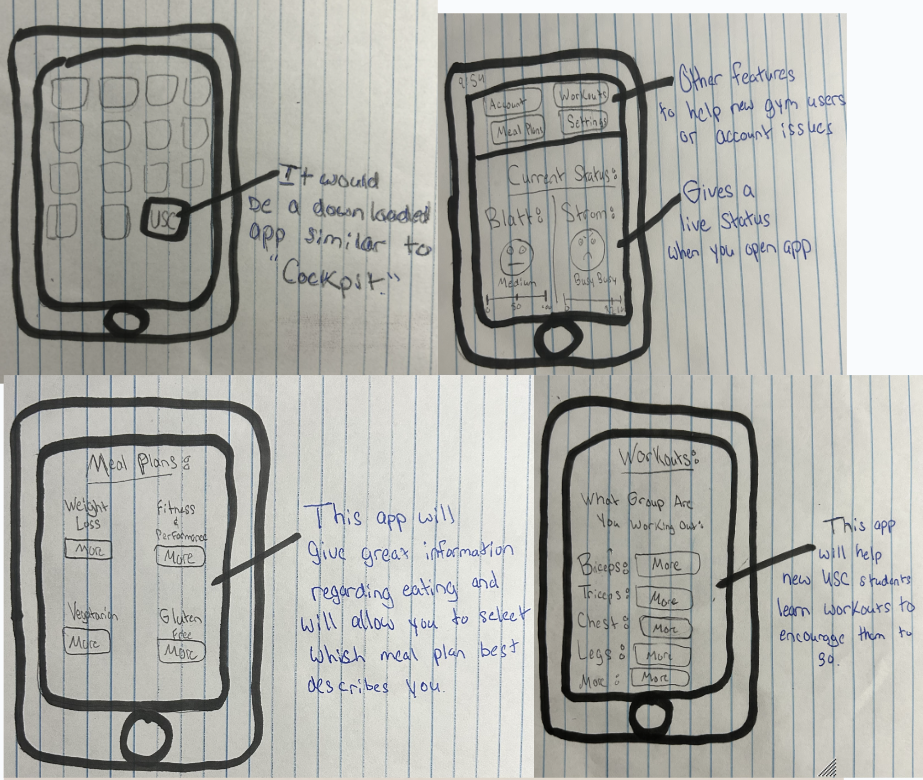 USC
It would
be a downloaded
app similar to
"Cockpit."
9:54
Account
Workouts
Meal Plans
Settings
Current Status:
Blatt:
Strom:
Medium
Busy Busy
0
50
Other features
to help new gym users
or account issues
Gives a
live Status
when you open app
Meal Plans:
Weight
Loss
More
Fitness
&
Performance
More
Vegetarian
More
Gluten
Free
More
This app will
give great information
regarding eating and
will allow you to select
which meal plan best
describes you.
Workouts:
What Group Are
You Working Out:
Biceps: More
Triceps: More
Chest: More
Legs: More
More: More
This app
will help
new USC students
learn workouts to
encourage them to
go.